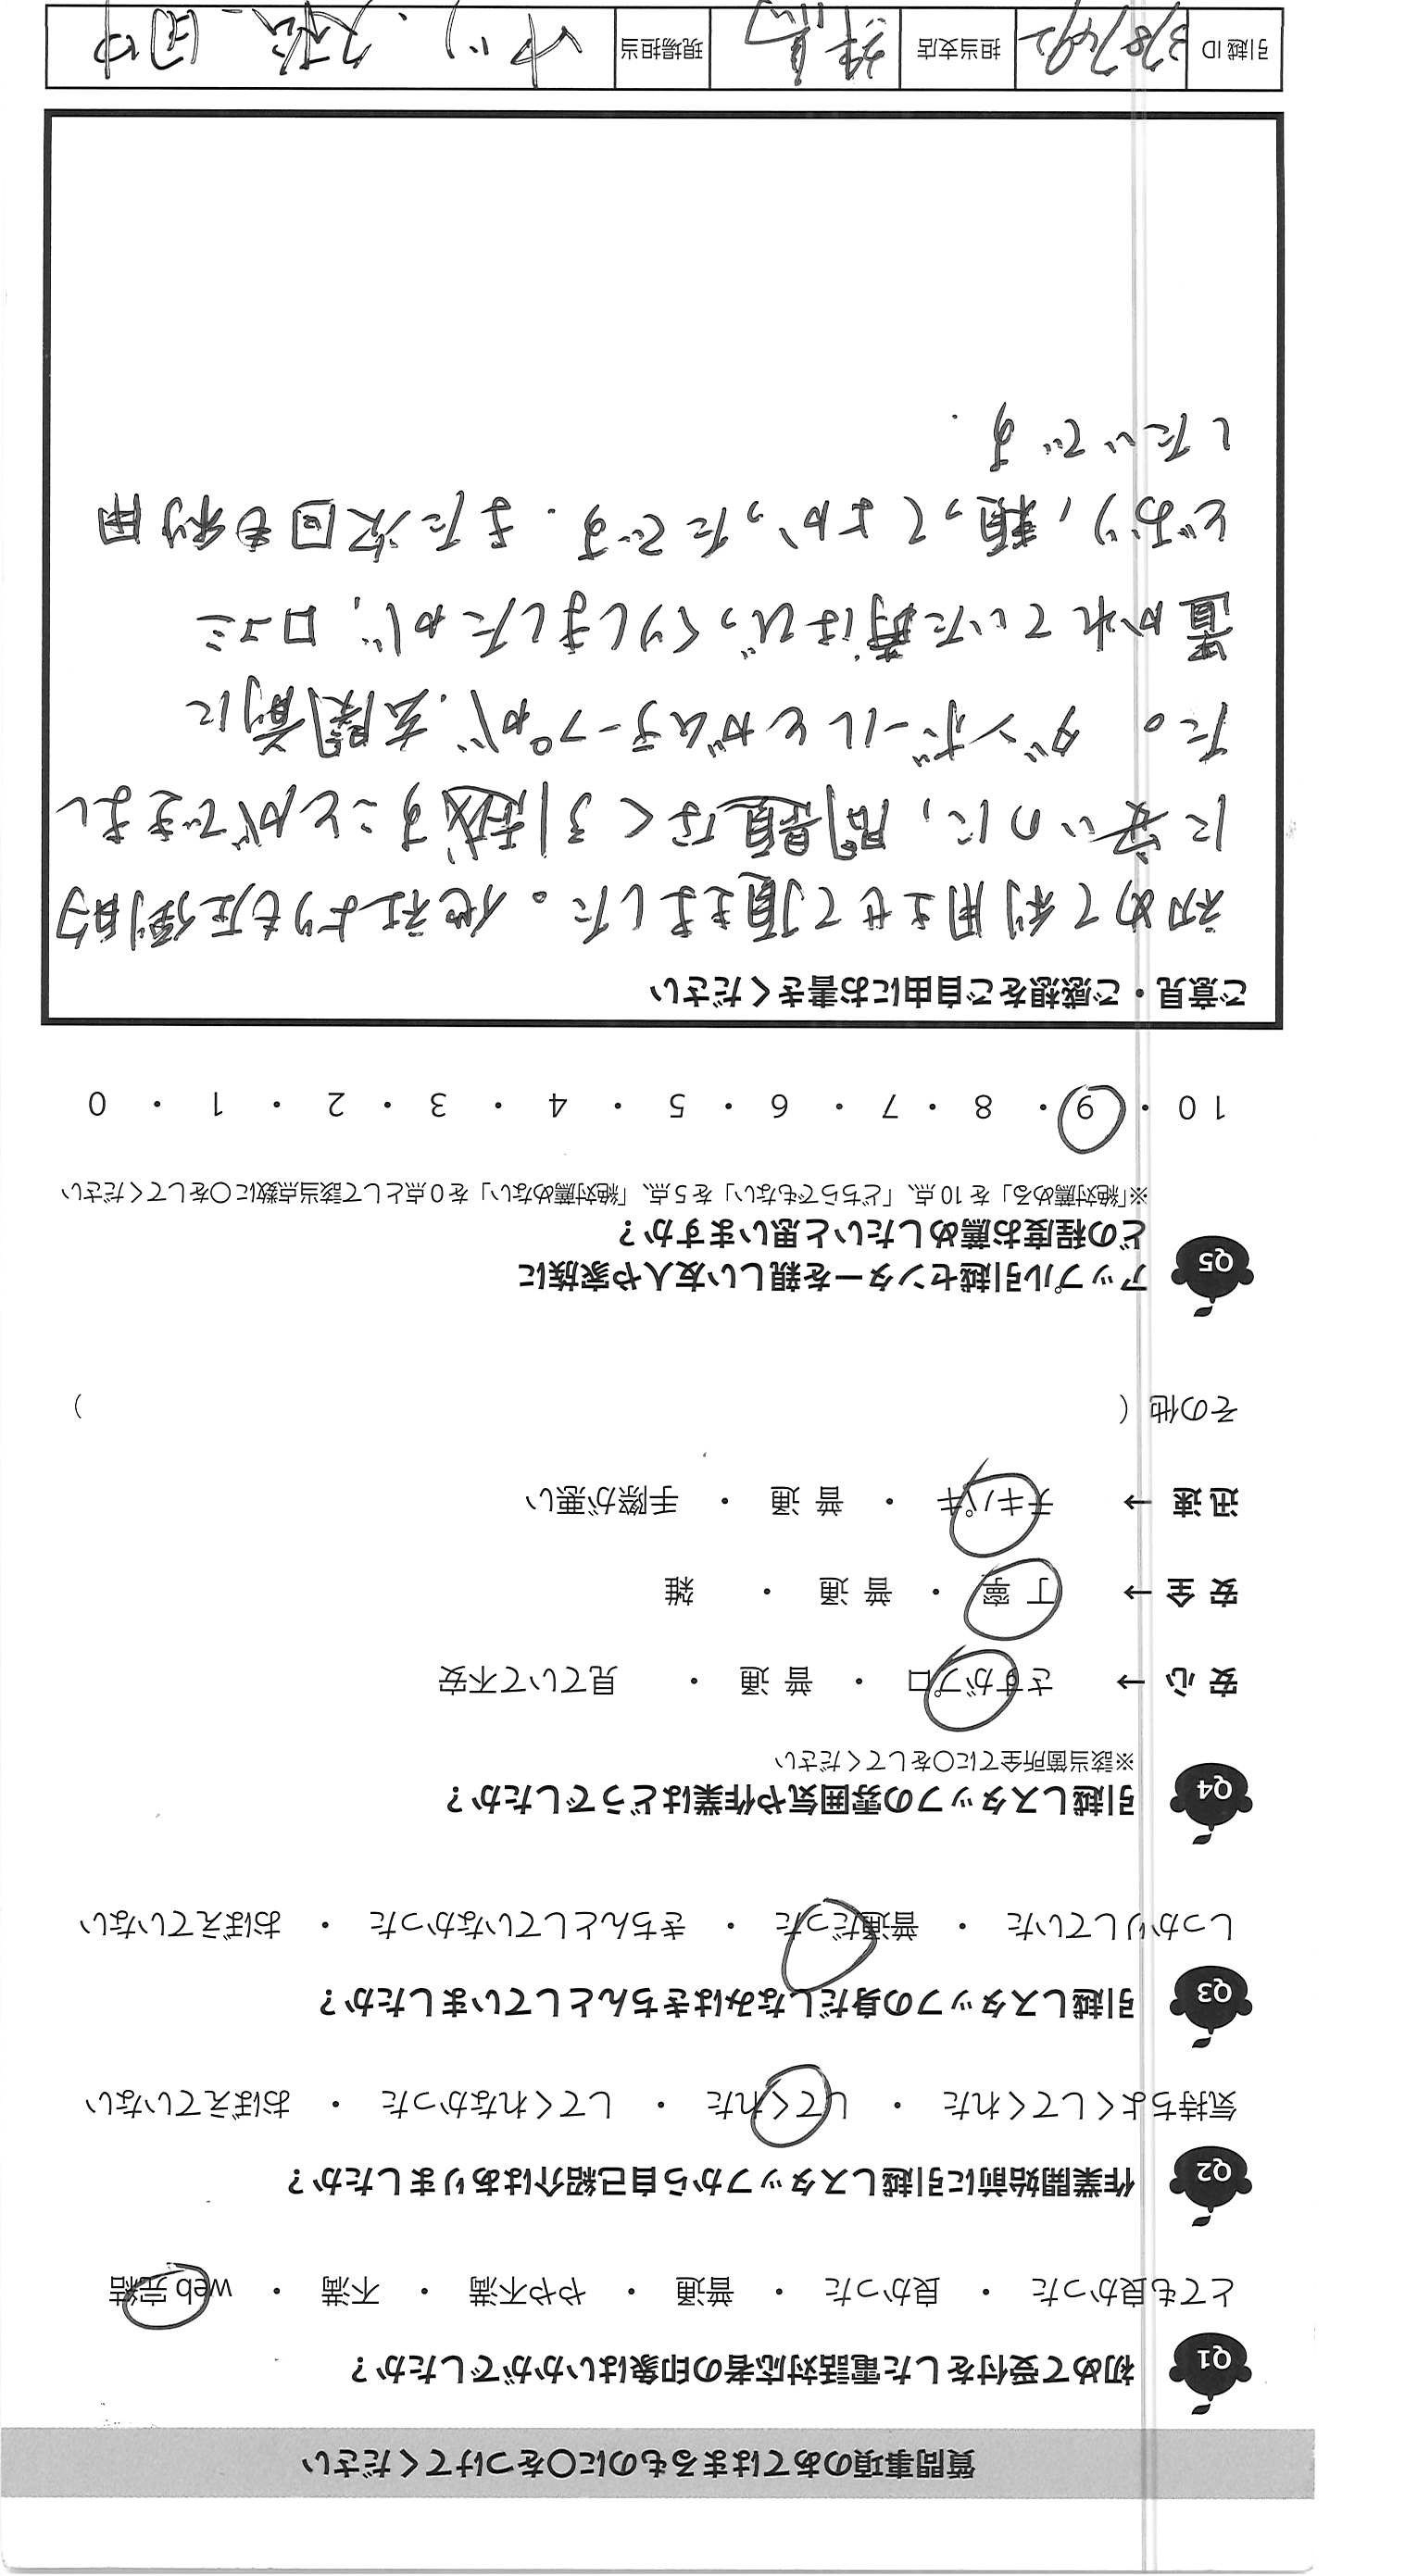 質問事項のあてはまるものに〇をつけてください
Q1 初めて受付をした電話対応者の印象はいかがでしたか？
とても良かった ・ 良かった ・ 普通 ・ やや不満 ・ 不満 ・ web 完結
Q2 作業開始前に引越しスタッフから自己紹介はありましたか？
気持ちよくしてくれた ・ してくれた ・ してくれなかった ・ おぼえていない
Q3 引越しスタッフの身だしなみはきちんとしていましたか？
しっかりしていた ・ 普通だった ・ きちんとしていなかった ・ おぼえていない
Q4 引越しスタッフの雰囲気や作業はどうでしたか？
※該当箇所全てに〇をしてください
安 心 → さすがプロ ・ 普 通 ・ 見ていて不安
安 全 → 丁 寧 ・ 普 通 ・ 雑
迅 速 → テキパキ ・ 普 通 ・ 手際が悪い
その他（ ）
Q5 アップル引越センターを親しい友人や家族に
どの程度お薦めしたいと思いますか？
※「絶対薦める」を 10 点、「どちらでもない」を 5 点、「絶対薦めない」を 0 点として該当点数に〇をしてください
10 ・ 9 ・ 8 ・ 7 ・ 6 ・ 5 ・ 4 ・ 3 ・ 2 ・ 1 ・ 0
ご意見・ご感想をご自由にお書きください
初めて利用させて頂きました。他社よりも圧倒的
に安いのに、問題なく引越すことができまし
た。ダンボールとガムテープが、玄関前に
置かれていた時はびっくりしましたが、口コミ
どおり、頼ってよかったです. また次回も利用
したいです.
引越 ID 担当支店 練馬 現場担当